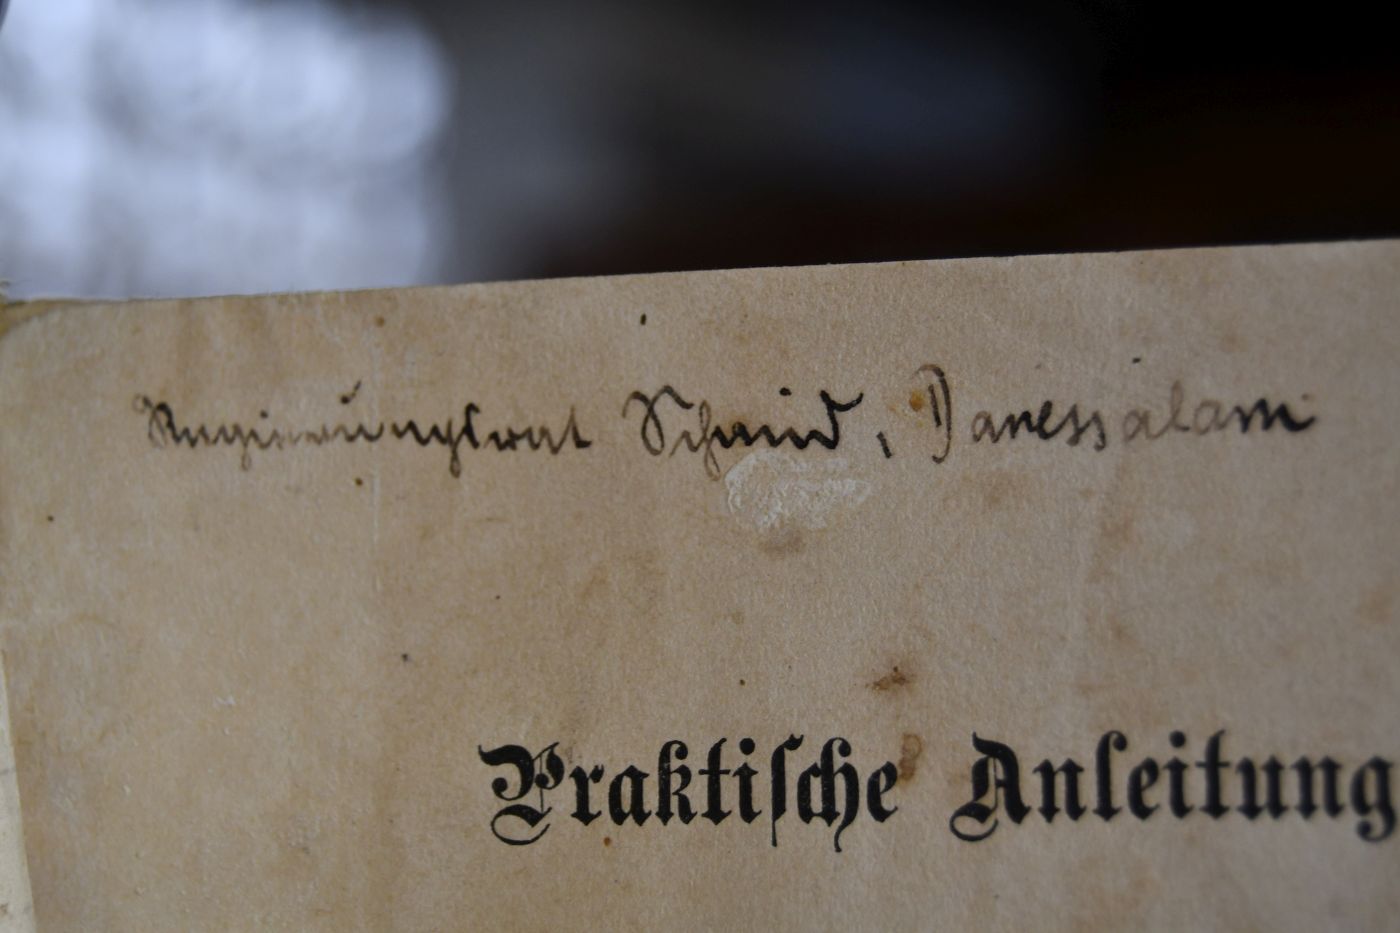 Regierungsrat Schmid, Daressalam
Praktische Anleitung